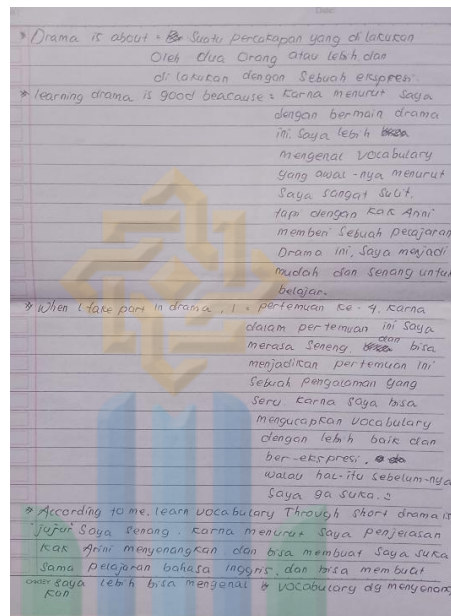 Date
* Drama is about = Suatu percakapan yang di lakukan
Oleh dua Orang atau lebih dan
di lakukan dengan Sebuah ekspresi.
* learning drama is good beacause = Karna menurut Saya
dengan bermain drama
ini. Saya lebih
mengenal vocabulary
yang awal-nya menurut
Saya sangat sulit.
tapi dengan Kak Arini
memberi sebuah pelajaran
Drama ini, Saya menjadi
mudah dan senang untuk
belajar.
* When I take part in drama, I = pertemuan Ke-4, Karna
dalam pertemuan ini saya
merasa seneng. dan bisa
menjadikan pertemuan ini
Sebuah pengalaman yang
Seru Karna Saya bisa
mengucapkan vocabulary
dengan lebih baik dan
ber-ekspresi.
walau hal-itu sebelum-nya
Saya ga suka.
* According to me, learn vocabulary Through short drama is
"jujur" Saya senang. Karna menurut Saya penjelasan
Kak Arini menyonangkan. dan bisa membuat Saya suka
Sama pelajaran bahasa inggris. dan bisa membuat
Saya lebih bisa mengenal vocabulary dg menyonang
kan